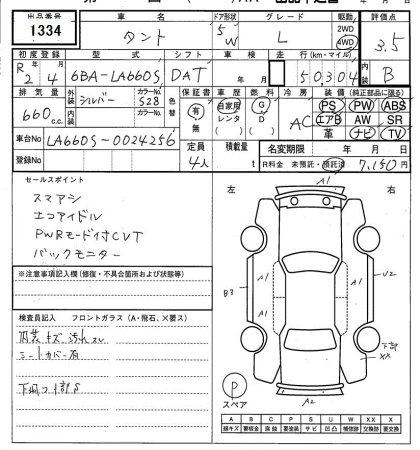 出品番号 1334
車名 タント
ドア形状 5 W
グレード L
駆動 2WD 4WD
評価点 3.5
初度登録 R2年 4月
型式 6BA-LA660S
シフト DAT
車検 年 月
走行(km・マイル) 50,304
B
排気量 660 c.c.
外装 シルバー
カラーNo. S28
内装
カラーNo.
色替
保証書 有 無
車歴 自家用 レンタ
燃料 G D
冷房 AC
装備(純正部品に限る)
PS PW ABS
エアB AW SR
革 ナビ TV
車台No LA660S-0024256
登録No
定員 4人
積載量 t
名変期限 年 月 日
R料金 未預託・預託済 7,150円
セールスポイント
スマアシ
エコアイドル
PWRモード付CVT
バックモニター
※注意事項記入欄(修復・不具合箇所および状態等)
検査員記入 フロントガラス(A・飛石、×要ス)
内装キズ汚れ
シートカバー有
左 右
A1
A1
A1
B3
U2
下部
XX
A2
P
スペア
A B C P S U W X XX
線キズ 要板金 腐蝕 要塗装 サビ 凹凸 補修跡 要交換 交換済